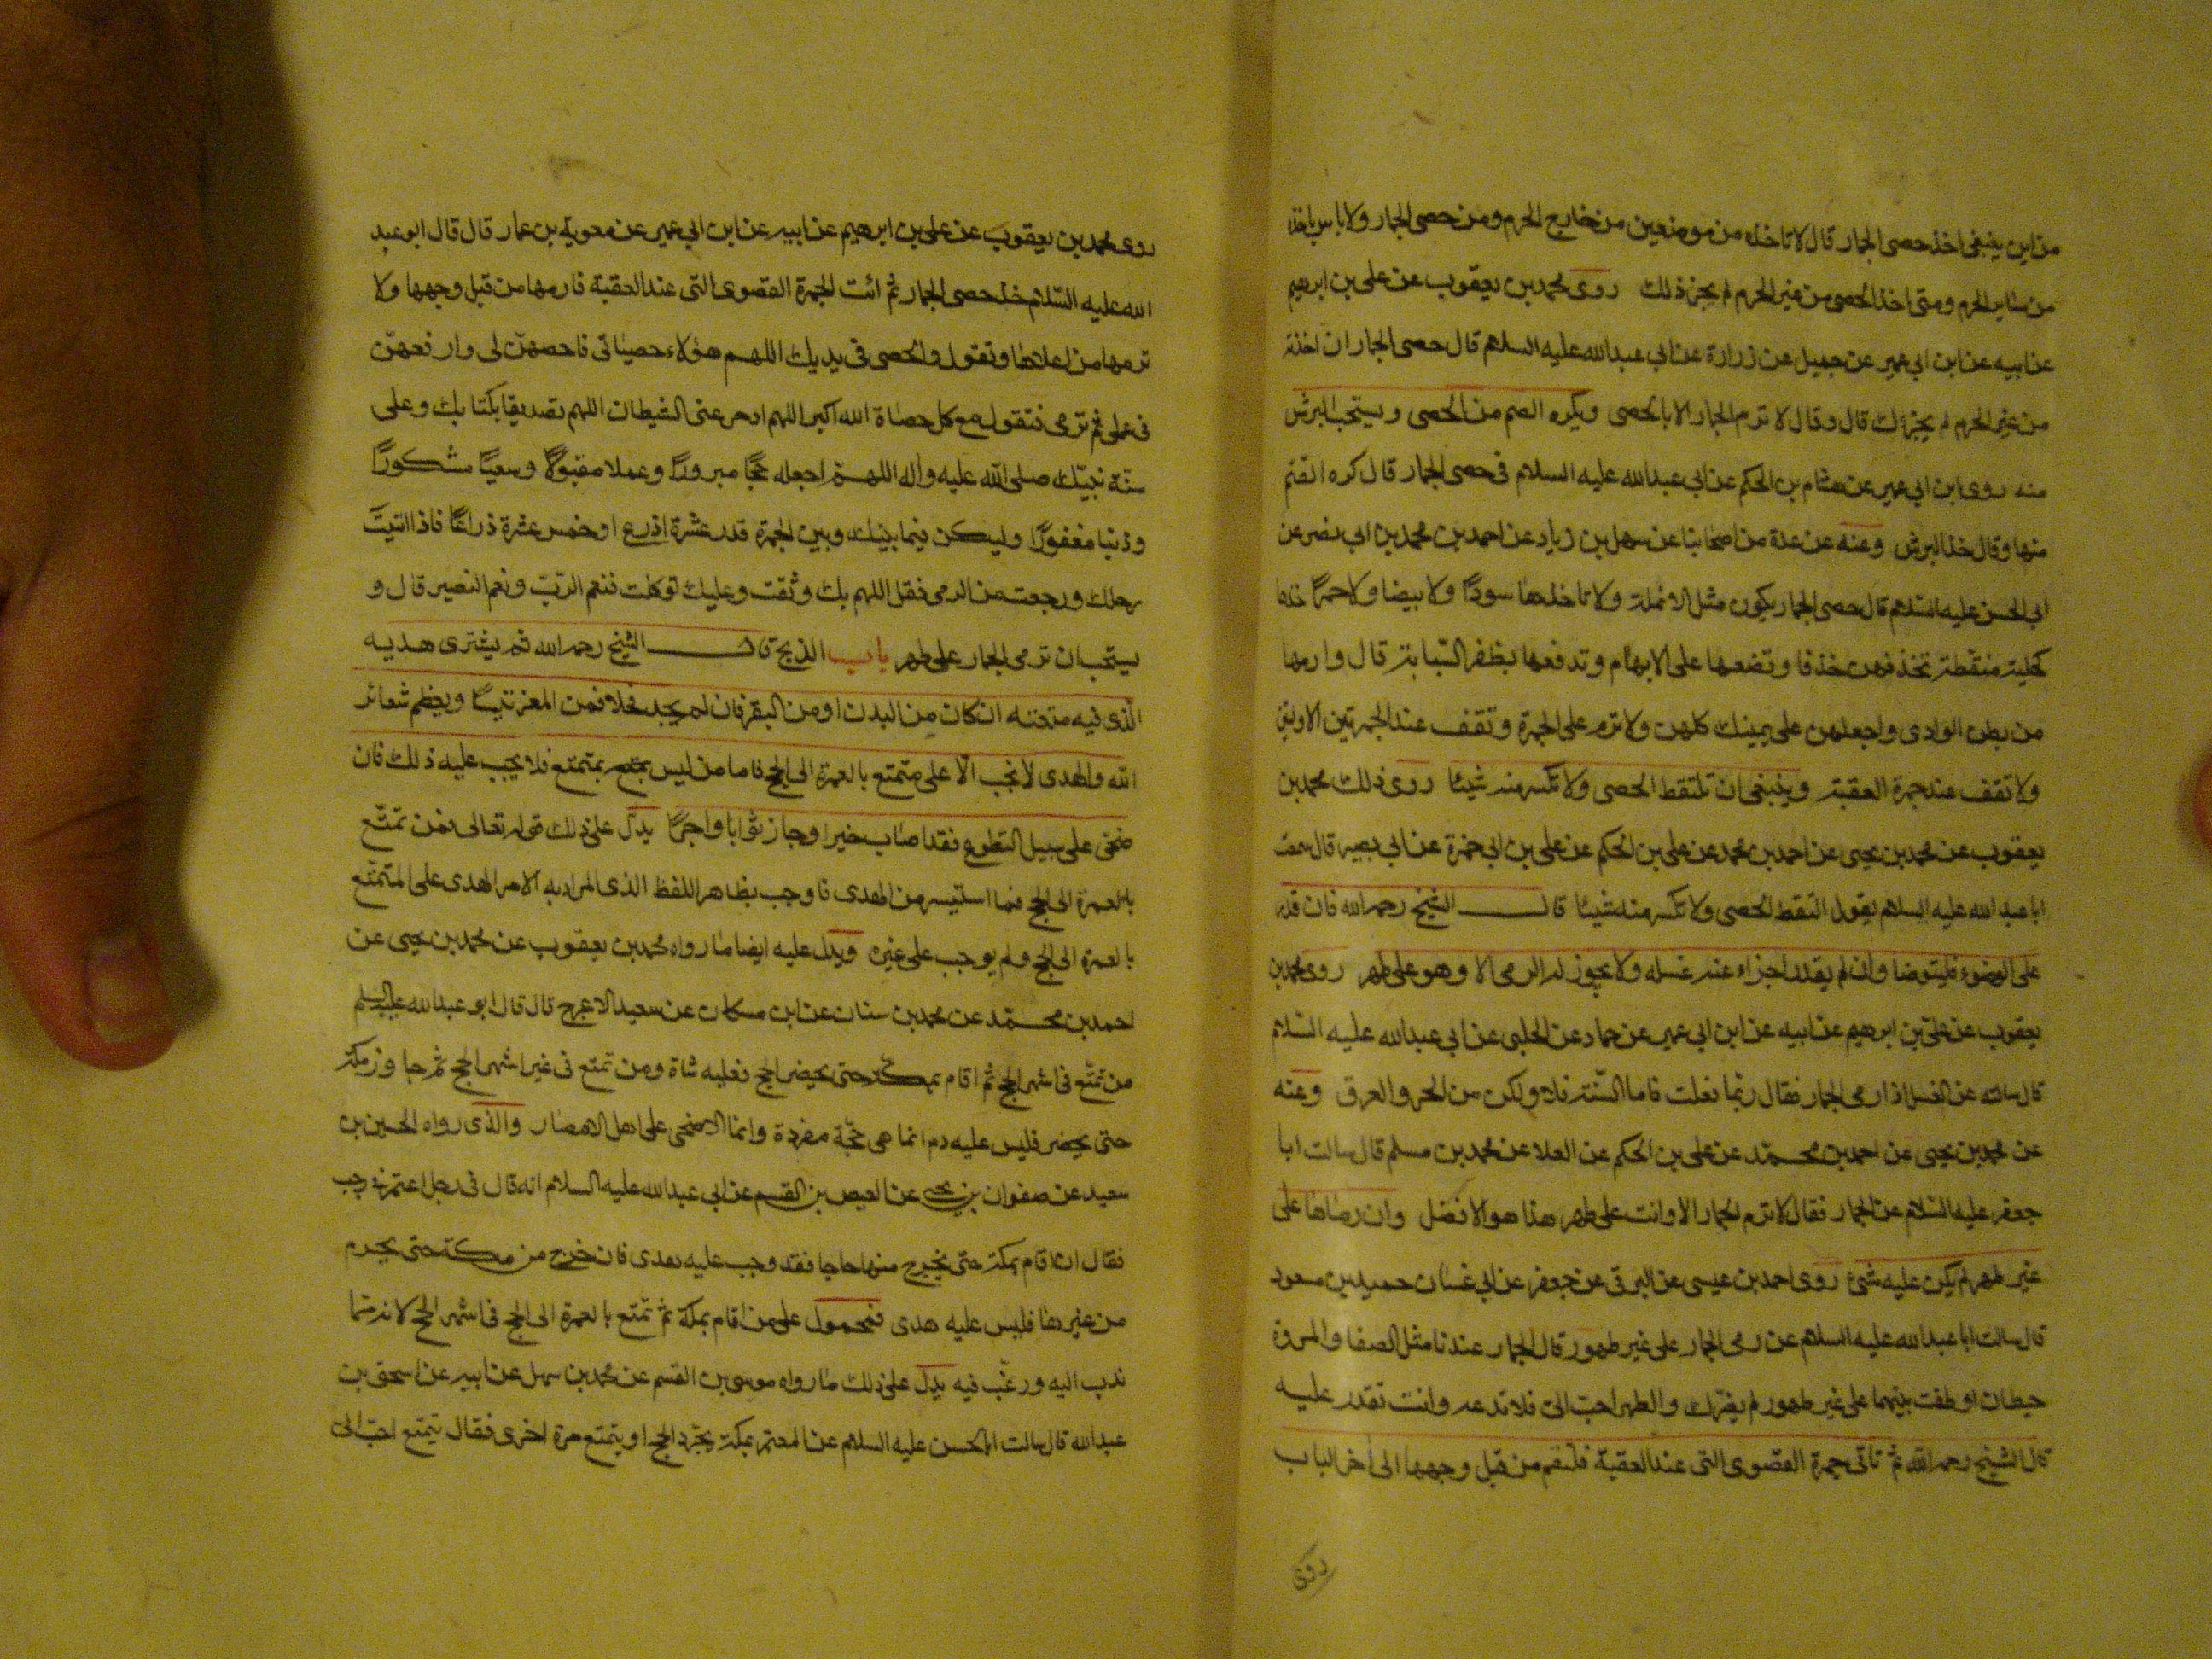 من اين ينبغى اخذ حصى الجمار قال لا تاخذه من موضعين من خارج الحرم ومن حصى الجمار ولا باس باخذه
من ساير الحرم ومتى اخذ الحصى من غير الحرم لم يجز ذلك روى محمد بن يعقوب عن على بن ابرهيم
عن ابيه عن ابن ابى عمير عن جميل عن زرارة عن ابى عبد الله عليه السلام قال حصى الجمار ان اخذته
من غير الحرم لم يجزءك قال وقال لا ترم الجمار الا بالحصى ويكره الصم من الحصى ويستحب البرش
منه روى ابن ابى عمير عن هشام بن الحكم عن ابى عبد الله عليه السلام فى حصى الجمار قال كره الصم
منها وقال خذ البرش وعنه عن عدة من اصحابنا عن سهل بن زياد عن احمد بن محمد بن ابى نصر عن
ابى الحسن عليه السلام قال حصى الجمار يكون مثل الانملة ولا تاخذها سودًا ولا بيضا ولا حمرًا خذها
كحلية منقطة تخذفهن خذفا وتضعها على الابهام وتدفعها بظفر السبابة قال وارمها
من بطن الوادى واجعلهن على يمينك كلهن ولا ترم على الجمرة وتقف عند الجمرتين الاولين
ولا تقف عند جمرة العقبة وينبغى ان تلتقط الحصى ولا تكسر منه شيئا روى ذلك محمد بن
يعقوب عن محمد بن يحيى عن احمد بن محمد عن على بن الحكم عن على بن ابى حمزة عن ابى بصير قال سمعت
ابا عبد الله عليه السلام يقول التقط الحصى ولا تكسر منه شيئا قال الشيخ رحمه الله فان قدر
على الوضوء فليتوضا وان لم يقدر اجزاه عنه غسله ولا يجوز له الرمى الا وهو على طهر روى محمد بن
يعقوب عن على بن ابرهيم عن ابيه عن ابن ابى عمير عن حماد عن الحلبى عن ابى عبد الله عليه السلام
قال سالته عن الغسل اذا رمى الجمار فقال ربما فعلت فاما السنة فلا ولكن من الحر والعرق وعنه
عن محمد بن يحيى عن احمد بن محمد عن على بن الحكم عن العلا عن محمد بن مسلم قال سالت ابا
جعفر عليه السلام عن الجمار فقال لا ترم الجمار الا وانت على طهر هذا هو الافضل وان رماها على
غير طهر لم يكن عليه شئ روى احمد بن عيسى عن البرقى عن جعفر عن ابى غسان حميد بن مسعود
قال سالت ابا عبد الله عليه السلام عن رمى الجمار على غير طهور قال الجمار عندنا مثل الصفا والمروة
حيطان ان طفت بينهما على غير طهور لم يضرك والطهر احب الى فلا تدعه وانت تقدر عليه
قال الشيخ رحمه الله ثم تاتى جمرة القصوى التى عند العقبة فلتقم من قبل وجهها الى اخر الباب
روى
روى محمد بن يعقوب عن على بن ابرهيم عن ابيه عن ابن ابى عمير عن معوية بن عمار قال قال ابو عبد
الله عليه السلام خذ حصى الجمار ثم ائت الجمرة القصوى التى عند العقبة فارمها من قبل وجهها ولا
ترمها من اعلاها وتقول والحصى فى يديك اللهم هؤلاء حصياتى فاحصهن لى وارفعهن
فى عملى ثم ترمى فتقول مع كل حصاة الله اكبر اللهم ادحر عنى الشيطان اللهم تصديقا بكتابك وعلى
سنة نبيك صلى الله عليه واله اللهم اجعله حجًا مبرورًا وعملا مقبولًا وسعيًا مشكورًا
وذنبا مغفورًا وليكن فيما بينك وبين الجمرة قدر عشرة اذرع او خمس عشرة ذراعًا فاذا اتيت
رحلك ورجعت من الرمى فقل اللهم بك وثقت وعليك توكلت فنعم الرب ونعم النصير قال و
يستحب ان ترمى الجمار على طهر باب الذبح قال الشيخ رحمه الله ثم يشترى هديه
الذى فيه متعته ان كان من البدن او من البقر فان لم يجد فحلا فمن المعز تيسًا ويعظم شعائر
الله والهدى لا يجب الا على متمتع بالعمرة الى الحج فاما من ليس بمتمتع فلا يجب عليه ذلك فان
ضحى على سبيل التطوع فقد اصاب خيرا وحاز ثوابا واجرًا يدل على ذلك قوله تعالى فمن تمتع
بالعمرة الى الحج فما استيسر من الهدى فاوجب بظاهر اللفظ الذى المراد به الامر الهدى على المتمتع
بالعمرة الى الحج ولم يوجب على غيره ويدل عليه ايضا ما رواه محمد بن يعقوب عن محمد بن يحيى عن
احمد بن محمد عن محمد بن سنان عن ابن مسكان عن سعيد الاعرج قال قال ابو عبد الله عليه السلم
من تمتع فى اشهر الحج ثم اقام بمكة حتى يحضر الحج فعليه شاة ومن تمتع فى غير اشهر الحج ثم جاوز مكة
حتى يحضر فليس عليه دم انما هى حجة مفردة وانما الاضحى على اهل الامصار والذى رواه الحسين بن
سعيد عن صفوان بن يحيى عن العيص بن القسم عن ابى عبد الله عليه السلام انه قال فى رجل اعتمر فى رجب
فقال ان اقام بمكة حتى يخرج منها حاجا فقد وجب عليه هدى فان خرج من مكة حتى يحرم
من غيرها فليس عليه هدى فمحمول على من اقام بمكة ثم تمتع بالعمرة الى الحج فى اشهر الحج لانه مما
ندب اليه ورغب فيه يدل على ذلك ما رواه موسى بن القسم عن محمد بن سهل عن ابيه عن اسحق بن
عبد الله قال سالت ابا الحسن عليه السلام عن المعتمر بمكة يجرد الحج او يتمتع مرة اخرى فقال يتمتع احب الى